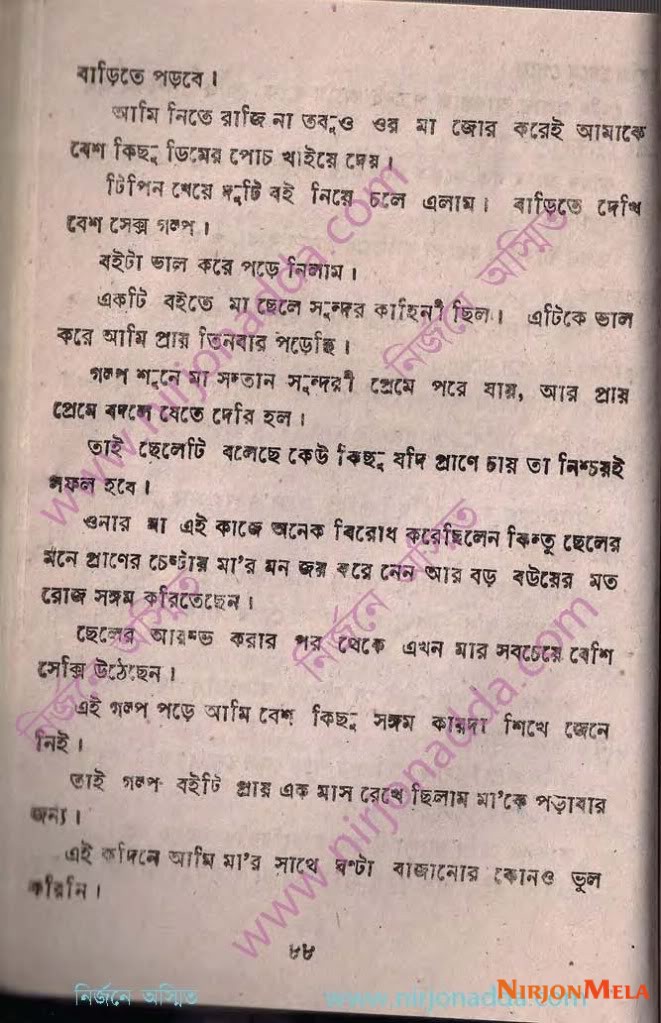 বাড়িতে পড়বে।
আমি নিতে রাজি না তবুও ওর মা জোর করেই আমাকে
বেশ কিছু ডিমের পোচ খাইয়ে দেয়।
টিপিন খেয়ে দুটি বই নিয়ে চলে এলাম। বাড়িতে দেখি
বেশ সেক্স গল্প।
বইটা ভাল করে পড়ে নিলাম।
একটি বইতে মা ছেলে সুন্দর কাহিনী ছিল। এটিকে ভাল
করে আমি প্রায় তিনবার পড়েছি।
গল্প শুনে মা সন্তান সুন্দরী প্রেমে পরে যায়, আর প্রায়
প্রেমে বদলে যেতে দেরি হল।
তাই ছেলেটি বলেছে কেউ কিছু যদি প্রাণে চায় তা নিশ্চয়ই
সফল হবে।
ওনার মা এই কাজে অনেক বিরোধ করেছিলেন কিন্তু ছেলের
মনে প্রাণের চেষ্টায় মা'র মন জয় করে নেন আর বড় বউয়ের মত
রোজ সঙ্গম করিতেছেন।
ছেলের আরম্ভ করার পর থেকে এখন মার সবচেয়ে বেশি
সেক্সি উঠেছেন।
এই গল্প পড়ে আমি বেশ কিছু সঙ্গম কায়দা শিখে জেনে
নিই।
তাই গল্প বইটি প্রায় এক মাস রেখে ছিলাম মা'কে পড়াবার
জন্য।
এই কদিনে আমি মা'র সাথে ঘণ্টা বাজানোর কোনও ভুল
করিনি।
৮৮
নির্জনে অস্মিত
www.nirjonadda.com
NIRJONMELA
www.nirjonadda.com
নির্জনে অস্মিত
নির্জনে অস্মিত
নির্জনে অস্মিত
www.nirjonadda.com